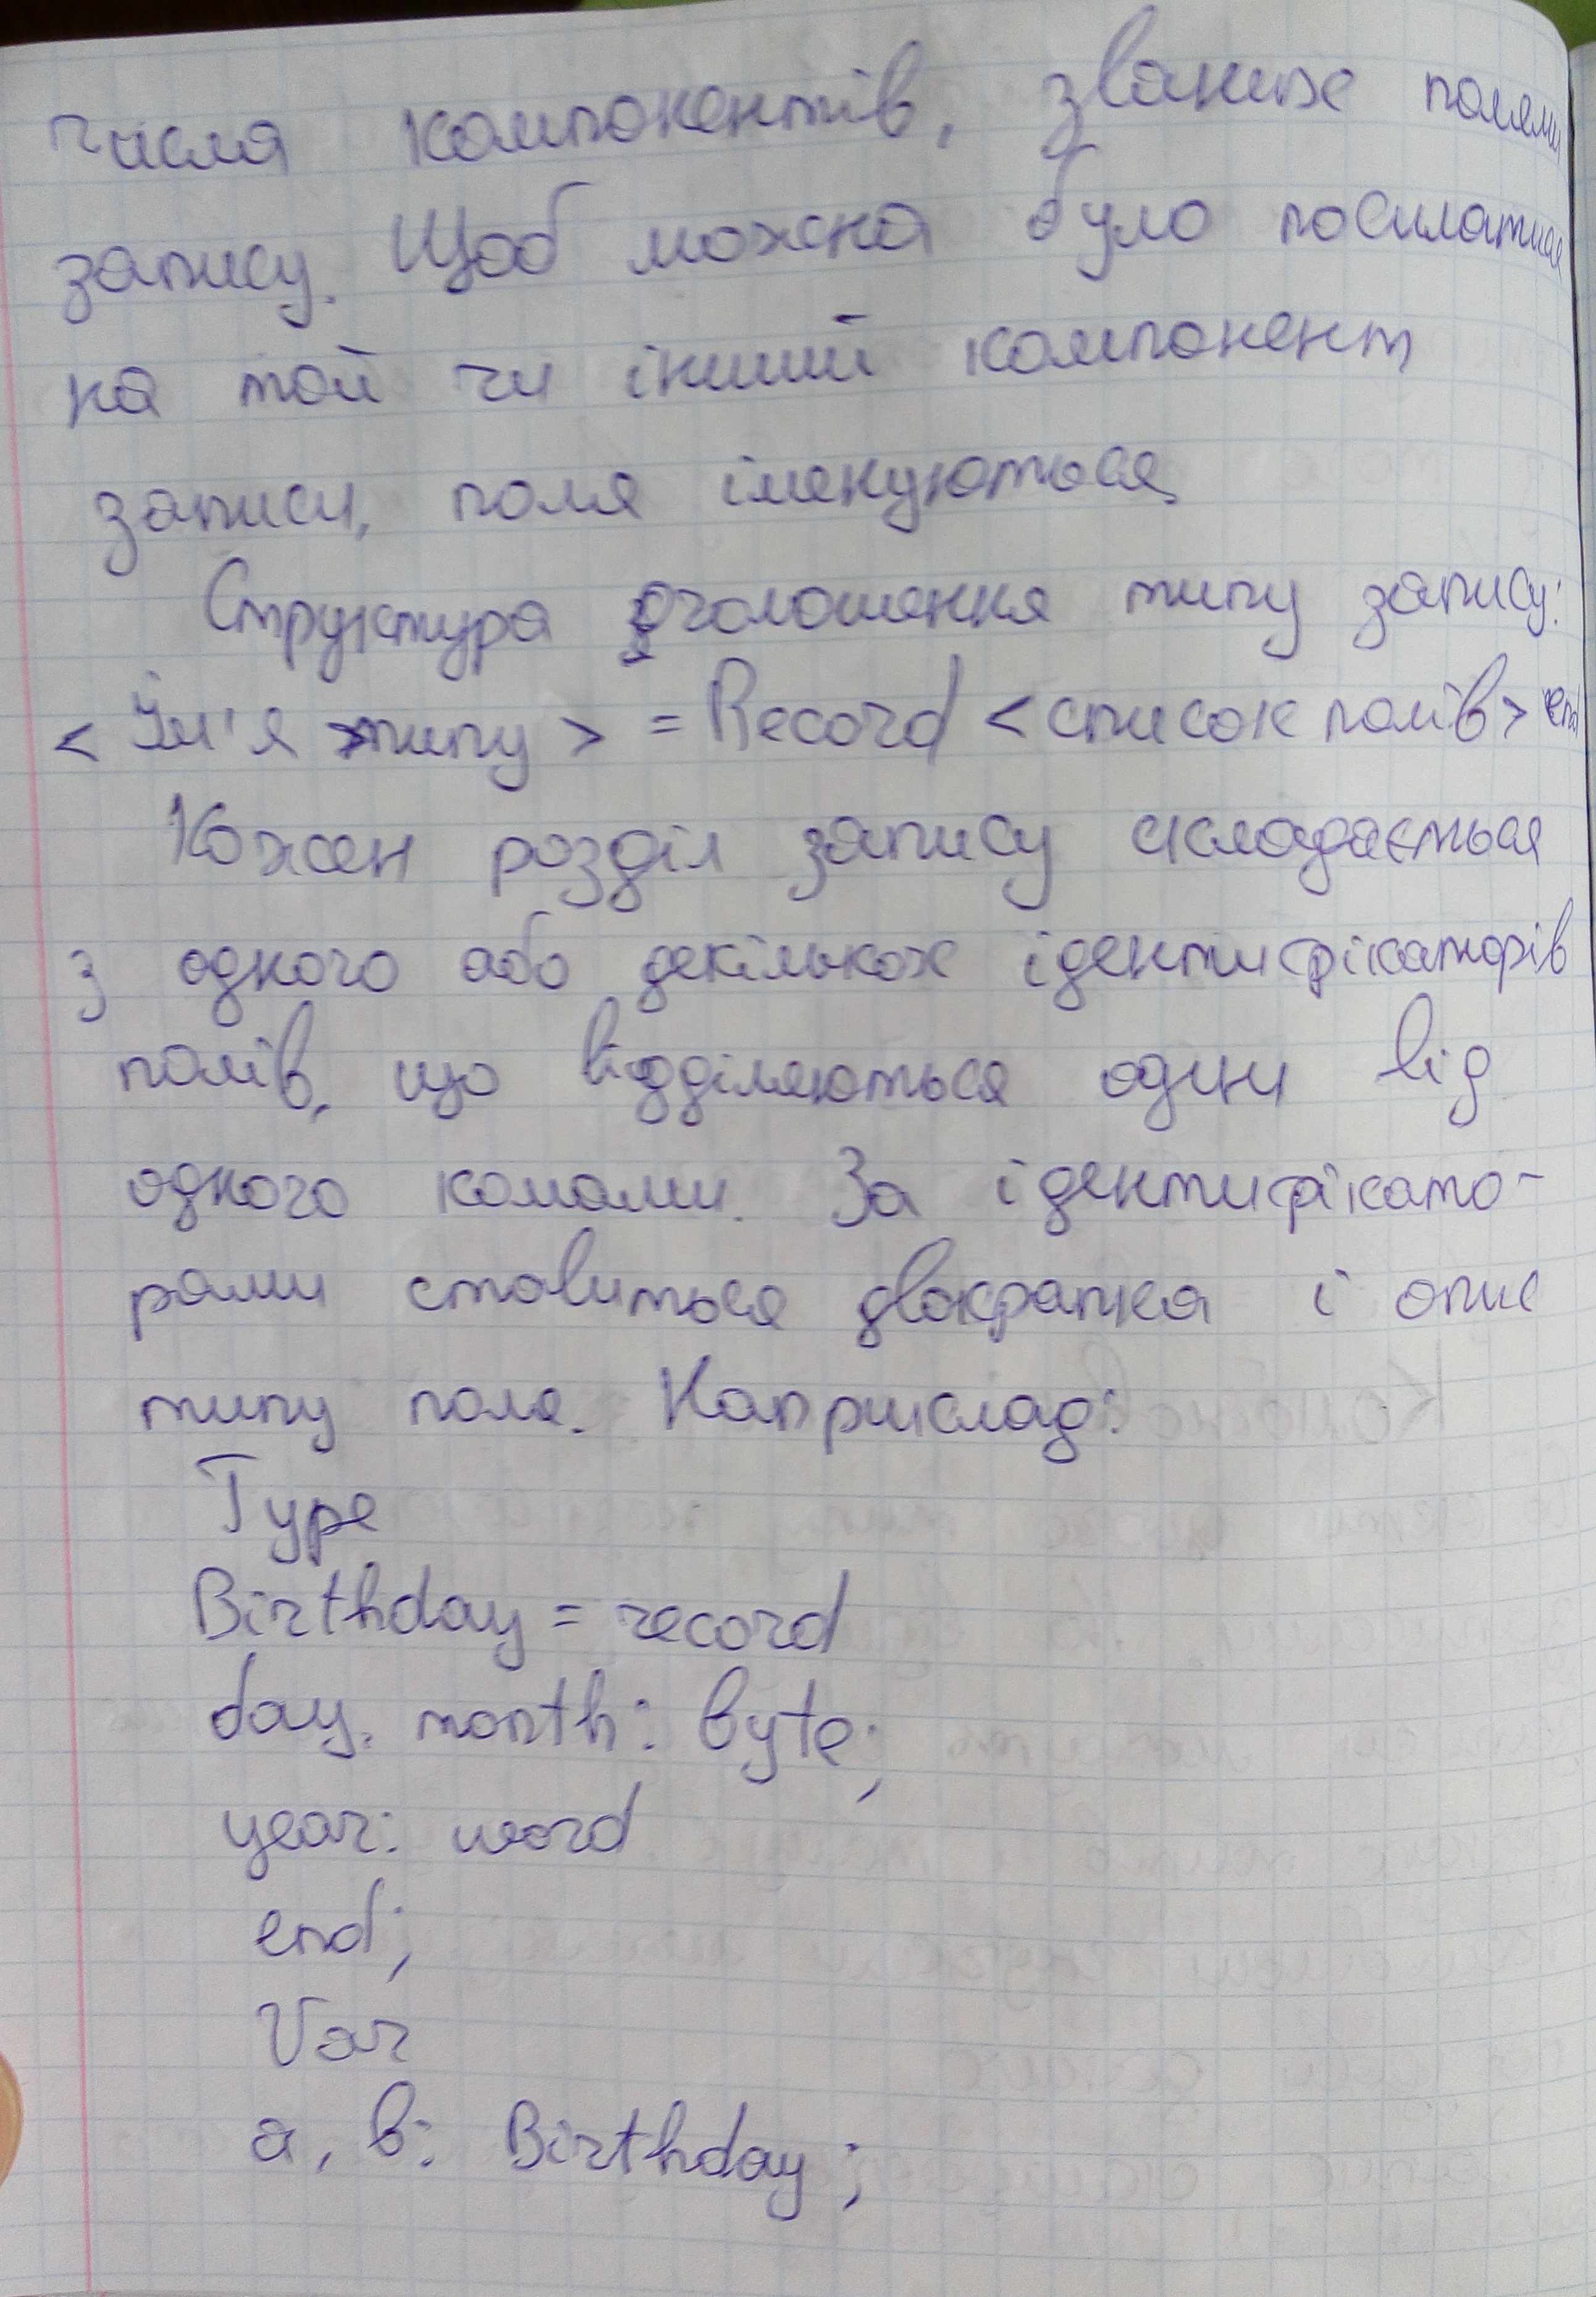 числа компонентів, званих полями
запису. Щоб можна було посилатися
на той чи інший компонент
записи, поля іменуються.
Структура оголошення типу запису:
< Їм'я типу > = Record < список полів > end
Кожен розділ запису складається
з одного або декількох ідентифікаторів
полів, що відділяються один від
одного комами. За ідентифікато-
рами ставиться двокрапка і опис
типу поля. Наприклад:
Type
Birthday = record
day, month: byte;
year: word
end;
Var
a, b: Birthday;